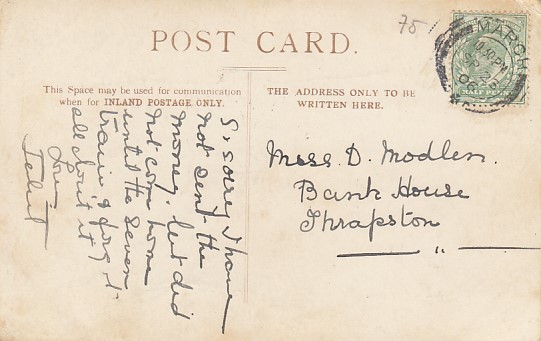 75
POST CARD.
MARCH
HALF PENNY
This Space may be used for communication
when for INLAND POSTAGE ONLY.
THE ADDRESS ONLY TO BE
WRITTEN HERE.
S, sorry I have
not sent the
money, but did
not come home
until the seven
train & forgot
all about it
Love
Miss D. Modlen.
Bank House
Thrapston